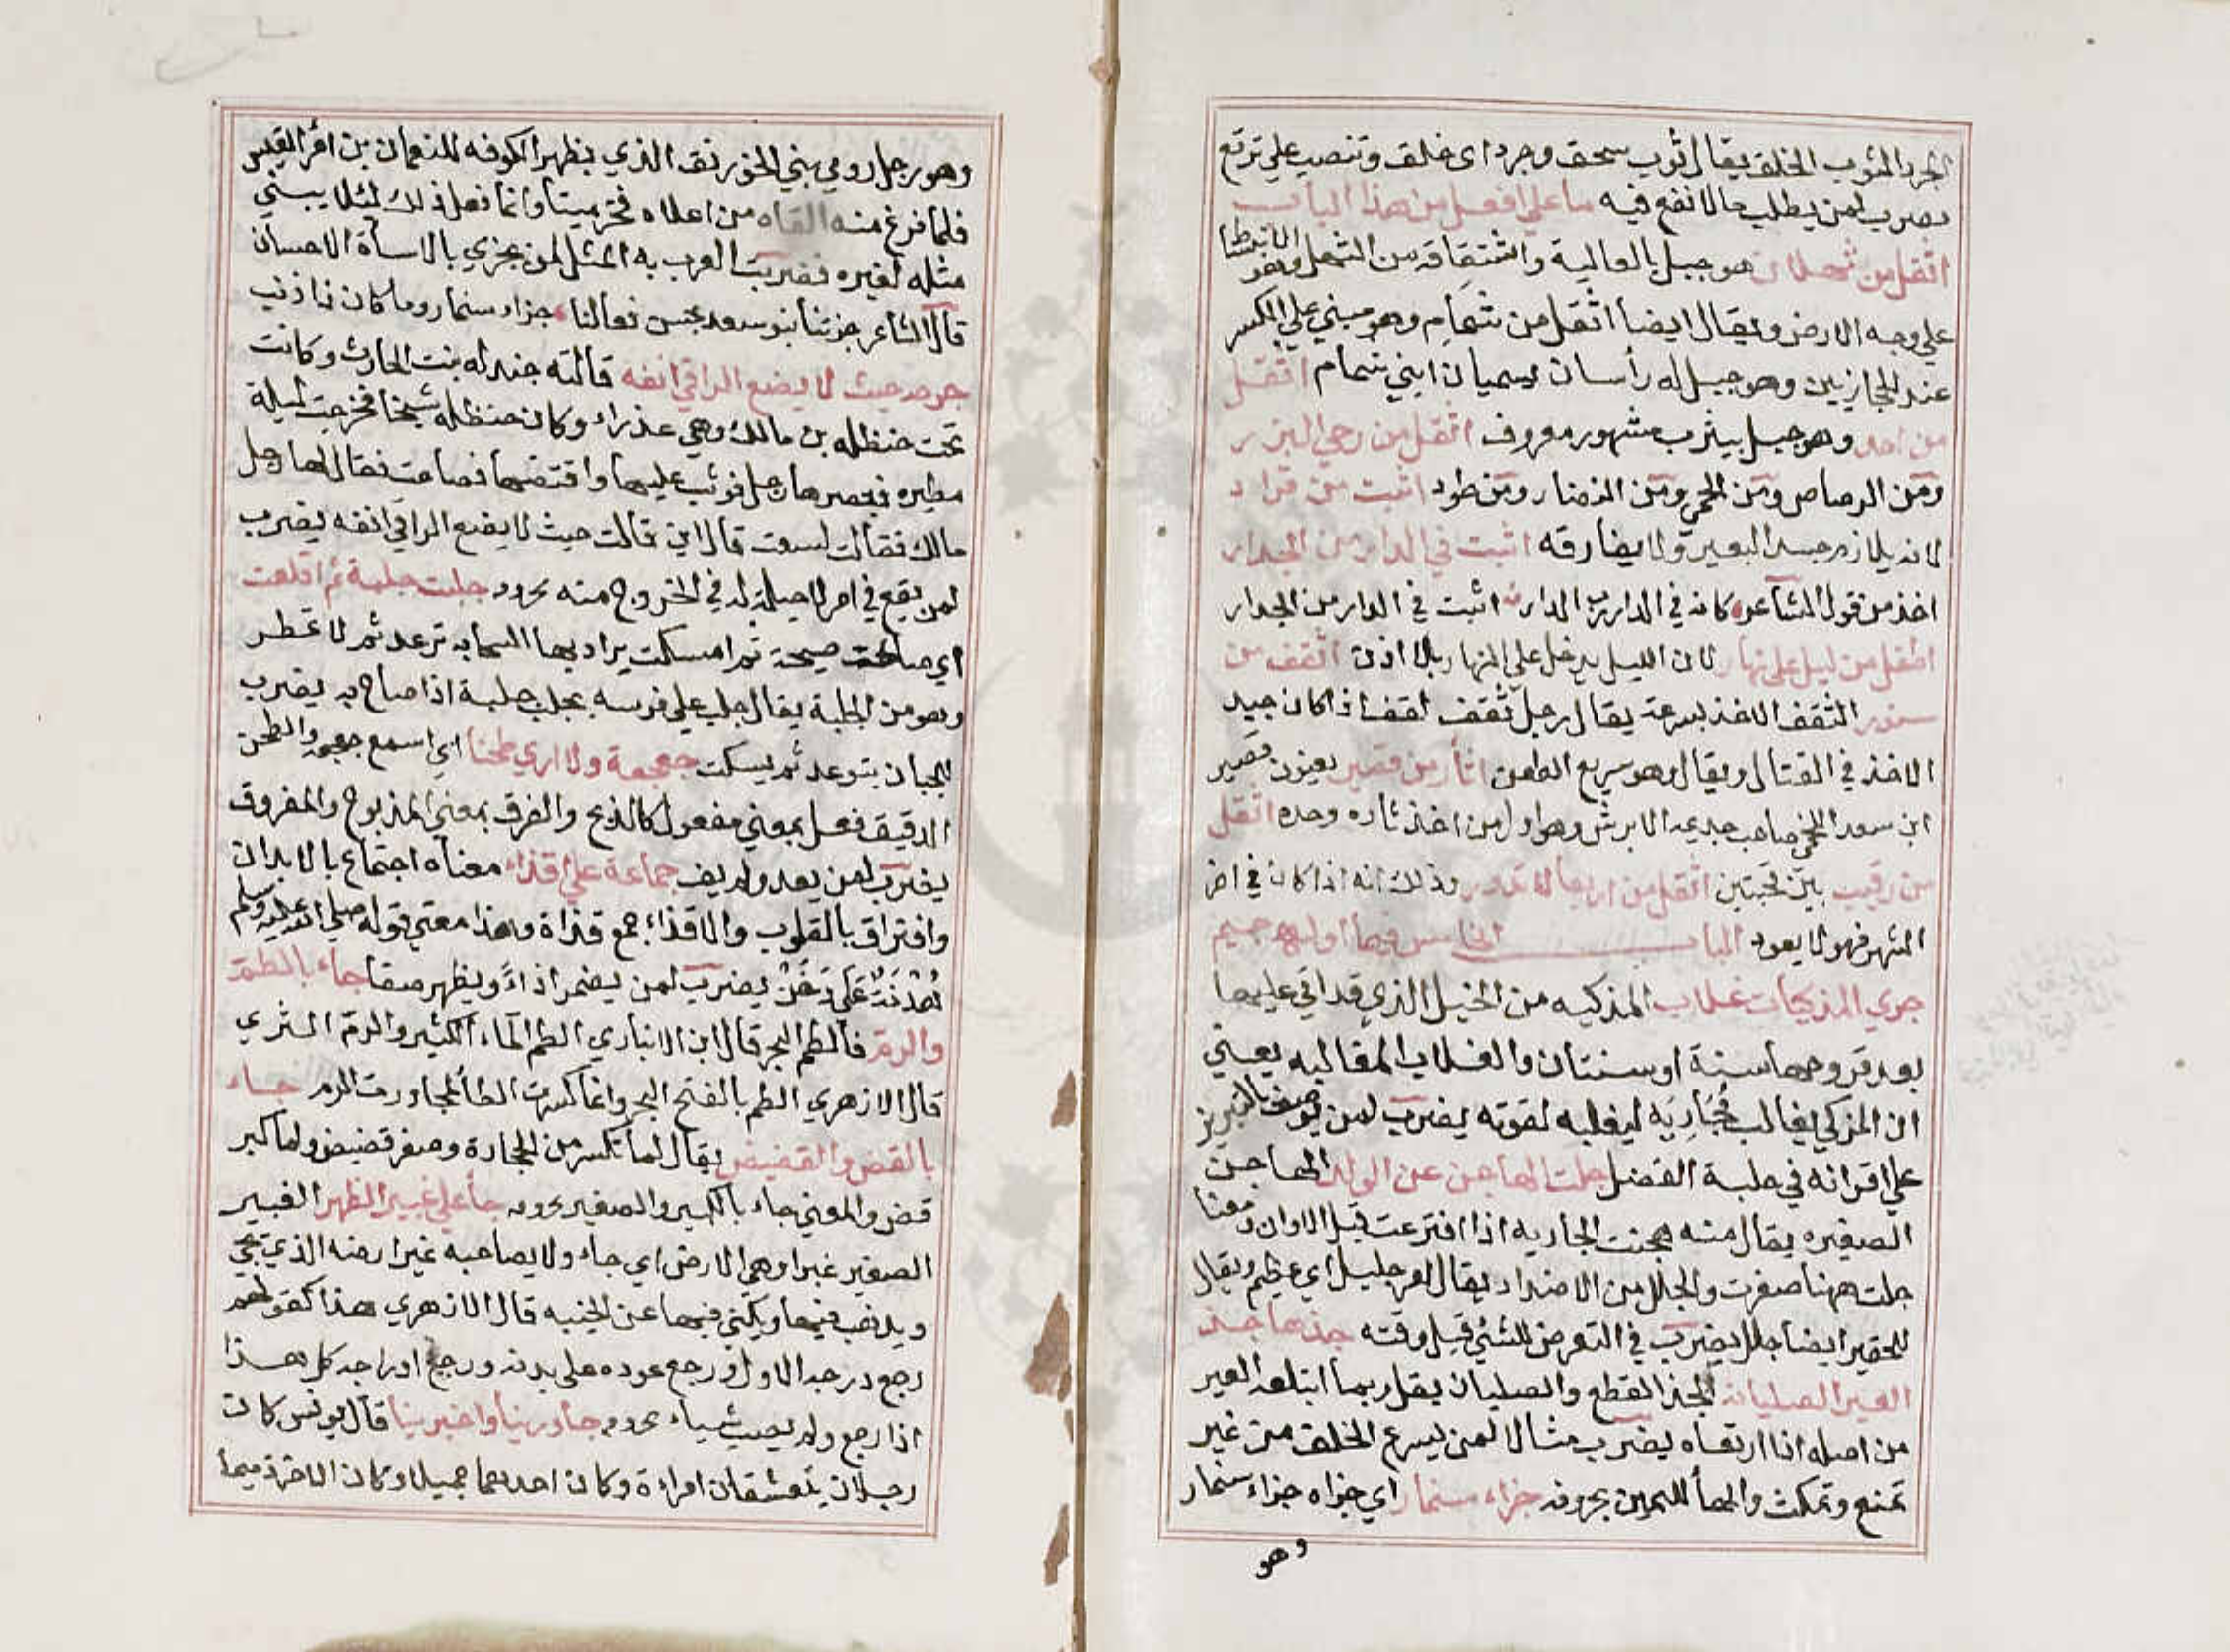 الجرد الثوب الخلق يقال ثوب سحق وجرد اى خلق وتنصب علي ترتع
يضرب لمن يطلب ما لا نفع فيه ما علي افعل من هذا الباب
اثقل من ثهلان هو جبل بالعالية واشتقاقه من الثهل وهو الانبساط
علي وجه الارض ويقال ايضا اثقل من شمام وهو مبني علي الكسر
عند الحجازيين وهو جبل له رأسان يسميان ابني شمام اثقل
من احد وهو جبل بيثرب مشهور معروف اثقل من رحي البزر
ومن الرصاص ومن الحمي ومن النضار ومن طود اثبت من قراد
لانه يلازم جسد البعير ولا يفارقه اثبت في الدار من الجدار
اخذ من قول الشاعر كانه في الدار رب الدار اثبت في الدار من الجدار
اطفل من ليل علي نهار لان الليل يدخل علي النهار بلا اذن اثقف من
سنور الثقف الاخذ بسرعة يقال رجل ثقف لقف اذا كان جيد
الاخذ في القتال ويقال وهو سريع الطعن اثأر من قصير يعنون قصير
ابن سعد اللخمي صاحب جديمه الابرش وهو اول من اخذ ثاره وحده اثقل
من رقيب بين محبين اثقل من اربعا لا تدور وذلك انه اذا كان في اخر
الشهر فهو لا يعود الباب الخامس فيما أوله جيم
جري المذكيات غلاب المذكيه من الخيل الذي قد اتي عليها
بعد قروحها سنة او سنتان والغلاب المغالبه يعني
ان المذكي يغالب مُجَارِيَه ليغلبه لقوته يضرب لمن يوصف بالتبريز
علي اقرانه في حلبة الفضل جلت الهاجن عن الولد الهاجن
الصغيره يقال منه هجنت الجاريه اذا افترعت قبل الاوان ومعنا
جلت ههنا صغرت والجلل من الاضداد يقال امر جليل اي عظيم ويقال
للحقير ايضا جلل يضرب في التعرض للشئي قبل وقته جذها جذ
العير الصليانه الجذ القطع والصليان بقل ربما ابتلعه العير
من اصله اذا ارتعاه يضرب مثالا لمن يسرع الخلف من غير
تمنع وتمكث والها لليمين بحروفه جزاء سنمار اي جزاه جزاء سنمار
وهو
وهو رجل رومي بني الخورنق الذي بظهر الكوفه للنعمان بن امر القيس
فلما فرغ منه القاه من اعلاه فخر ميتا وانما فعل ذلك لئلا يبني
مثله لغيره فضربت العرب به المثل لمن يجزي بالاسأة الاحسان
قال الشاعر جزتنا بنو سعد بحسن فعالنا جزاء سنمار وما كان ذا ذنب
جرحه حيث لا يضع الراقي انفه قالته جندله بنت الحارث وكانت
تحت حنظله بن مالك وهي عذراء وكان حنظله شيخا فخرجت ليلة
مطيره فبصر بها رجل فوثب عليها وافتضها فصاحت فقال لها رجل
مالك فقالت لسعت قال اين قالت حيث لا يضع الراقي انفه يضرب
لمن يقع في امر لا حيلة له في الخروج منه بحروفه جلبت جلبة ثم اقلعت
أي صاحت صيحة ثم امسكت يراد بها السحابه ترعد ثم لا تمطر
وهو من الجلبة يقال جلب علي فرسه يجلب جلبة اذا صاح به يضرب
للجبان يتوعد ثم يسكت جعجعة ولا اري طحنا اي اسمع جعجعة والطحن
الدقيق فعل بمعني مفعول كالذبح والفرق بمعني المذبوح والمفروق
يضرب لمن يعد ولم يف جماعة علي اقذاء معناه اجتماع بالابدان
وافتراق بالقلوب والاقذاء جمع قذاة وهذا معني قوله صلي الله عليه وسلم
هُدْنَةٌ عَلَي دَخَنْ يضرب لمن يضمر اذاءً ويظهر صفا جاء بالطم
والرم فالطم البحر قال ابن الانباري الطم الماء الكثير والرم الثري
قال الازهري الطم بالفتح البحر وانما كسرت الطاء لمجاورت الرم جاء
بالقض والقضيض يقال لما تكسر من الحجارة وصغر قضيض ولما كبر
قض والمعني جاء بالكبير والصغير بحروفه جأ علي غبير الظهر الغبير
الصغير غبرا وهي الارض اي جاء ولا يصاحبه غير ارضه الذي يجي
ويذهب فيها ويكني فيها عن الخيبه قال الازهري هذا كقولهم
رجع درجه الاول ورجع عوده علي بدئه ورجع ادراجه كل هذا
اذا رجع ولم يصب شياء بحروفه جأور ينا واخبرينا قال يونس كان
رجلان يتعشقان امراءة وكان احدهما جميلا وكان الاخر ذميما